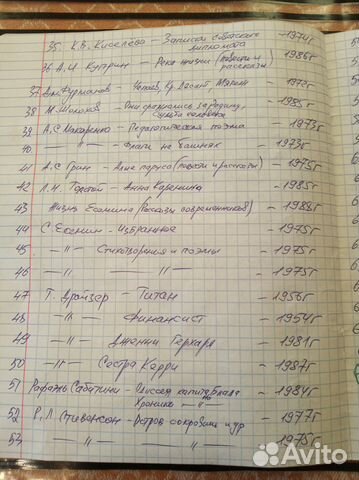 35 К.В. Киселёва - Записки советского дипломата - 1974г
36 А.И Куприн - Река жизни (повести и рассказы) - 1986г
37 Дм. Фурманов - Чапаев, Кр. десант, Мятеж - 1972г
38 М. Шолохов - Они сражались за родину, Судьба человека - 1985г
39 А.С. Макаренко - Педагогическая поэма - 1973г
40 —"— Флаги на башнях - 1973г
41 А.С Грин - Алые паруса (повести и рассказы) - 1975г
42 Л.Н. Толстой - Анна Каренина - 1985г
43 Жизнь Есенина (Рассказы современников) - 1988г
44 С. Есенин - Избранное - 1975г
45 —"— Стихотворения и поэмы - 1975г
46 —"— —"— - 1975г
47 Т. Драйзер - Титан - 1956г
48 —"— Финансист - 1954г
49 —"— Дженни Герхард - 1981г
50 —"— Сестра Керри - 1987г
51 Рафаэль Сабатини - Одиссея капитана Блада - 1984г
Хроника —"—
52 Р.Л Стивенсон - Остров сокровищ и др - 1977г
53 —"— —"— - 1975г
Avito